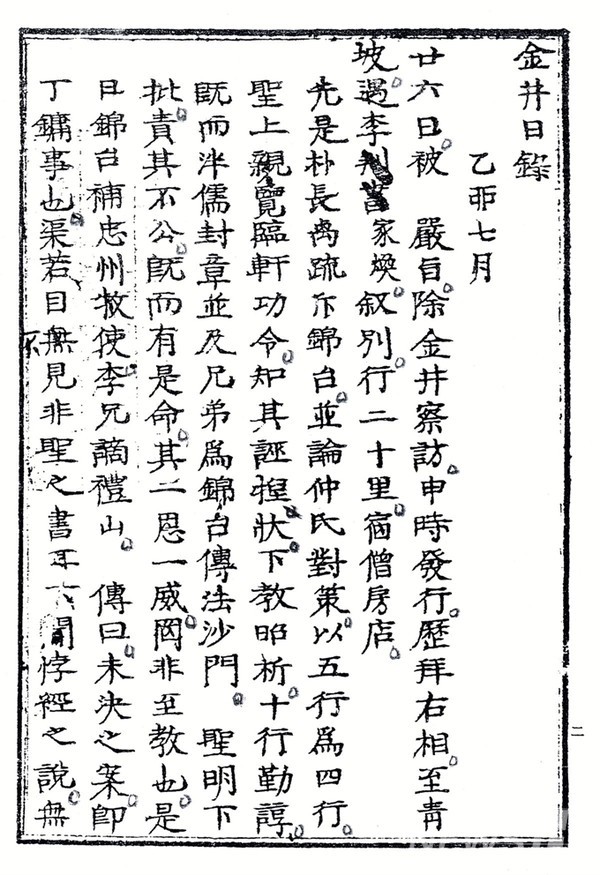 金井日錄
乙卯七月
廿六日被 嚴旨除金井察訪申時發行歷拜右相至靑
坡遇李判書家煥叙別行二十里宿僧房店
先是朴長卨疏斥錦台並論仲氏對策以五行爲四行
聖上親覽臨軒功令知其誣捏狀下教昭析十行勤諄
旣而泮儒封章並及兄弟爲錦台傳法沙門 聖明下
批責其不公旣而有是命其二恩一威罔非至教也是
日錦台補忠州牧使李兄謫禮山 傳曰未決之案卽
丁鏞事也渠若目無見非聖之書耳不聞悖經之說無
二